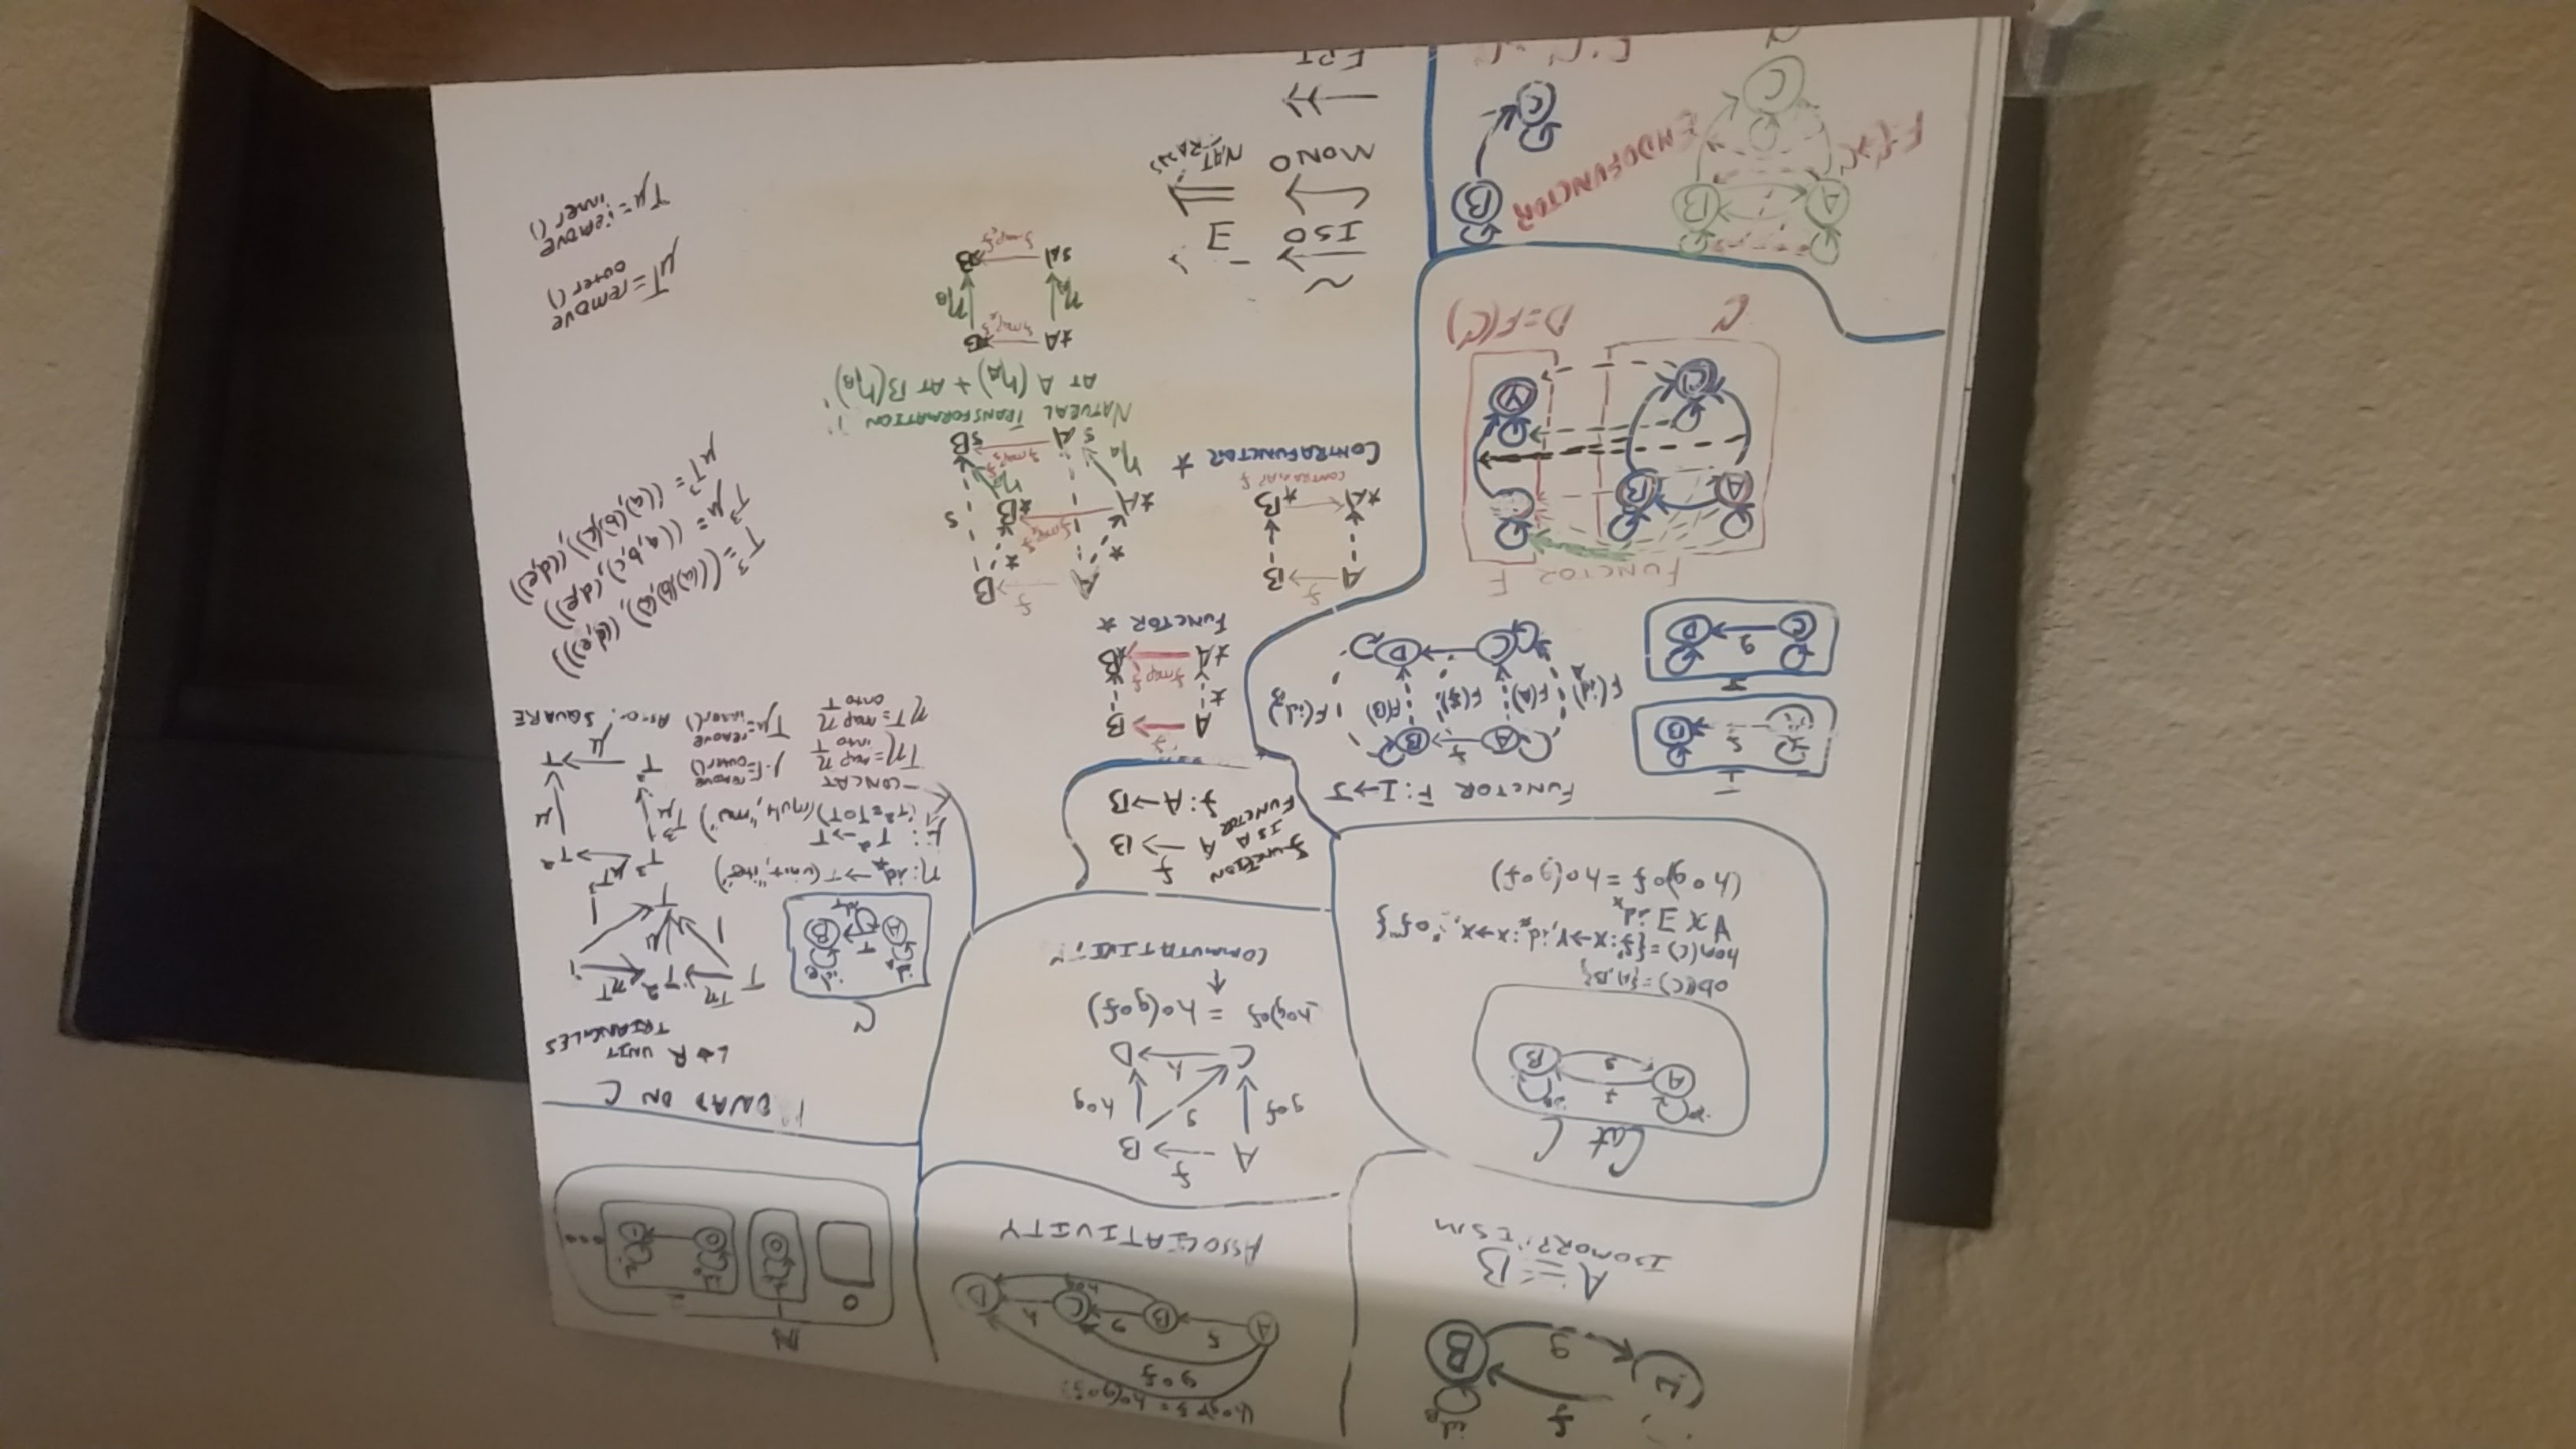 f
id_B
g
B
A ≅ B
ISOMORPHISM
(h∘g)∘f = h∘(g∘f)
g∘f
A f B g C h D
h∘g
ASSOCIATIVITY
ℕ
0 1 2
...
Cat C
A f B
g
ob(C) = {A,B}
hom(C) = {f:X→Y, id_x:X→X, "∘f"}
∀x ∃ id_x
(h∘g)∘f = h∘(g∘f)
A f B
g∘f g h∘g
C h D
(h∘g)∘f = h∘(g∘f)
↑
COMMUTATIVITY
MONAD ON C
L + R UNIT
TRIANGLES
C
id_A id_B
A T B
T Tη T² ηT T
1 μ 1
T
η: id_* → T (unit, "ite")
μ: T² → T
(T² = T∘T) (mult, "mu")
- CONCAT
Tη = map η
into T
ηT = map η
onto T
μT = remove
outer()
Tμ = remove
inner()
T³ μT³ T²
T³μ μ
T² μ T
Assoc. SQUARE
FUNCTION
IS A
FUNCTOR
A f→ B
f: A→B
FUNCTOR F: I→J
I
f B
J
C g D
A f B
F(id)_A F(A) F(f) F(B) F(id)_B
C D
A f B
*
*A fmap f *B
FUNCTOR *
FUNCTOR F
A B
C Y
C D=F(C)
A f B
*A *B
CONTRAMAP f
CONTRAFUNCTOR *
A f B
* * s
*A fmap f *B
η_A η_B
sA fmap f sB
NATURAL TRANSFORMATION
AT A (η_A) + AT B (η_B)
*A *B
fmap f
η_A η_B
sA sB
fmap f
T³ = (((a)(b)(c)), ((d,e)))
T³μ = ((a,b,c), (d,e))
μT³ = ((a),(b)(c)), ((d,e))
μT = remove
outer()
Tμ = remove
inner()
~
ISO ∃
MONO NAT
TRANS
EPI
A B
C
ENDOFUNCTOR
B
C